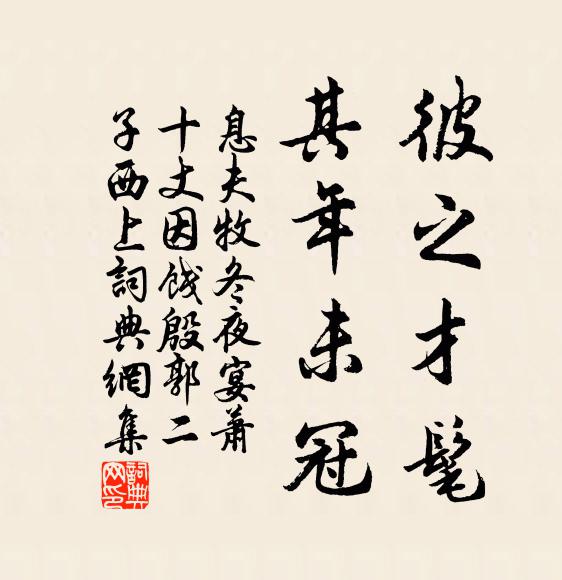 彼之才髦
其年未冠
息夫牧冬夜宴蕭
十丈因餞殷郭二
子西上詞典網集
詞典网印